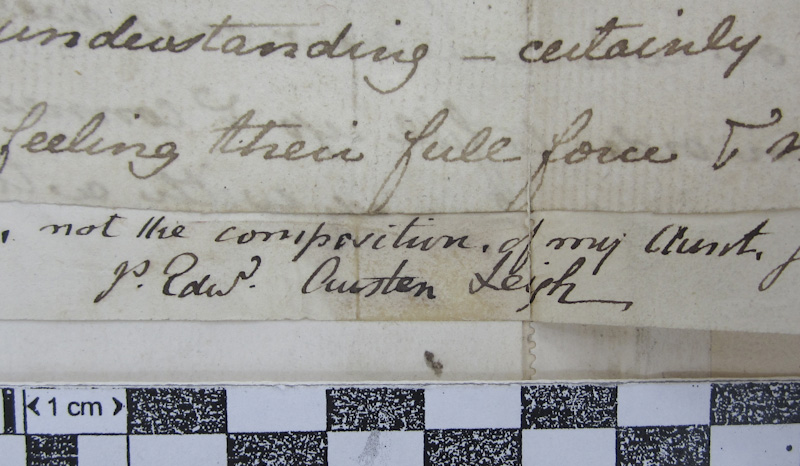 understanding – certainly
feeling their full force &
not the composition, of my Aunt,
J. Edwd. Austen Leigh
1 cm